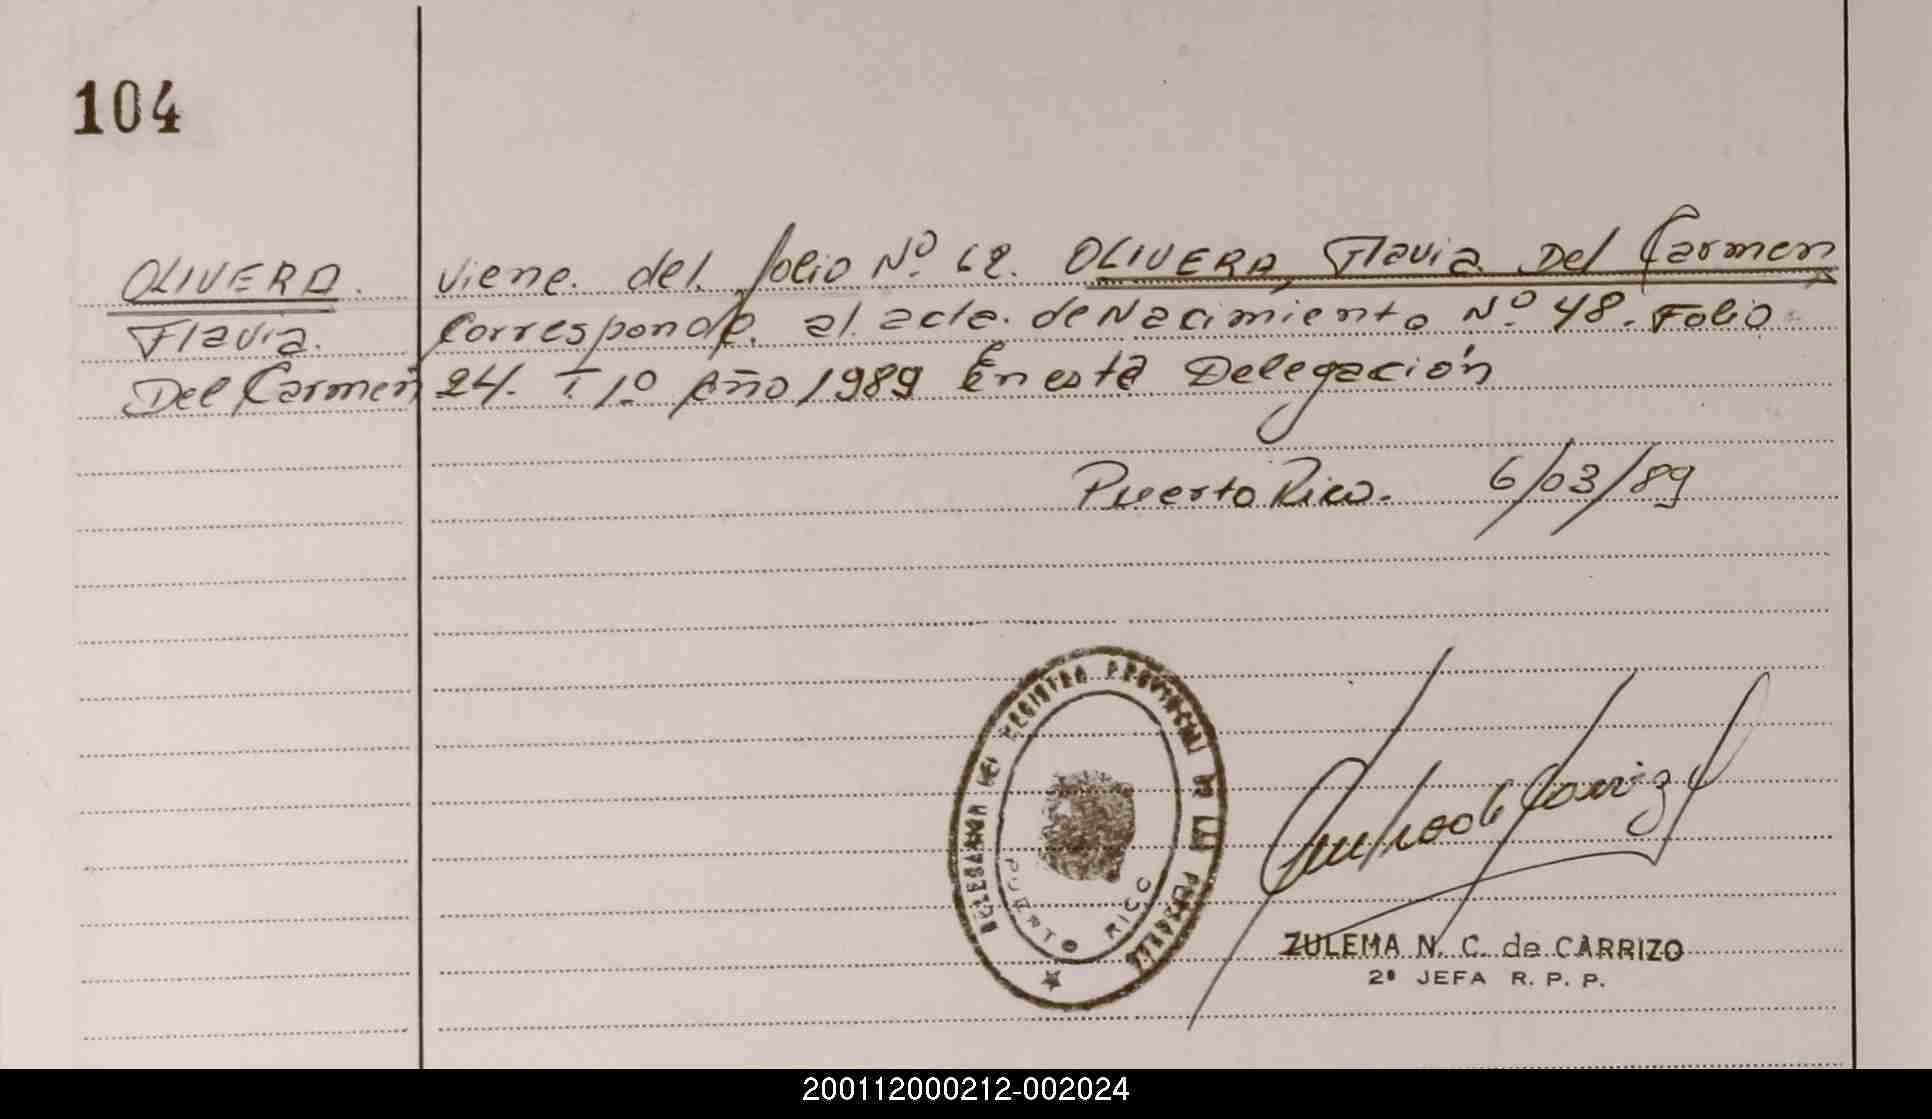 104
OLIVERA.
Flavia.
Del Carmen
Viene. del. folio Nº. 62. OLIVERA, Flavia Del Carmen
Corresponde. al. acta. de Nacimiento Nº 48. Folio
24. T. 1º. Año 1989 En esta Delegación
Puerto Rico. 6/03/89
DELEGACION DEL REGISTRO PROVINCIAL DE LAS PERSONAS
PUERTO RICO
ZULEMA N. C. de CARRIZO
2ª JEFA R. P. P.
200112000212-002024